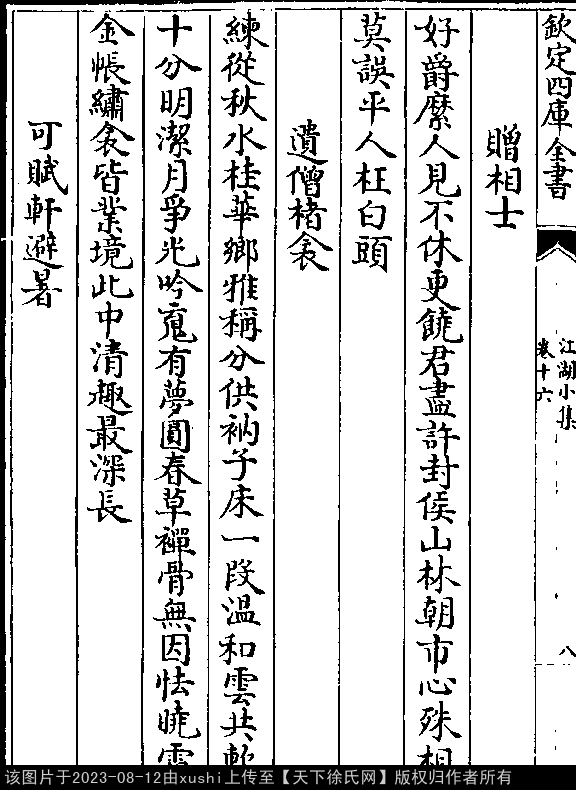 欽定四庫全書
江湖小集
卷十六
八
贈相士
好爵縻人見不休更饒君盡許封侯山林朝市心殊相
莫誤平人枉白頭
遺僧楮衾
練從秋水桂華鄉雅稱分供衲子床一段溫和雲共軟
十分明潔月爭光吟寬有夢圓春草禪骨無因怯曉霜
金帳繡衾皆業境此中清趣最深長
可賦軒避暑
该图片于2023-08-12由xushi上传至【天下徐氏网】版权归作者所有